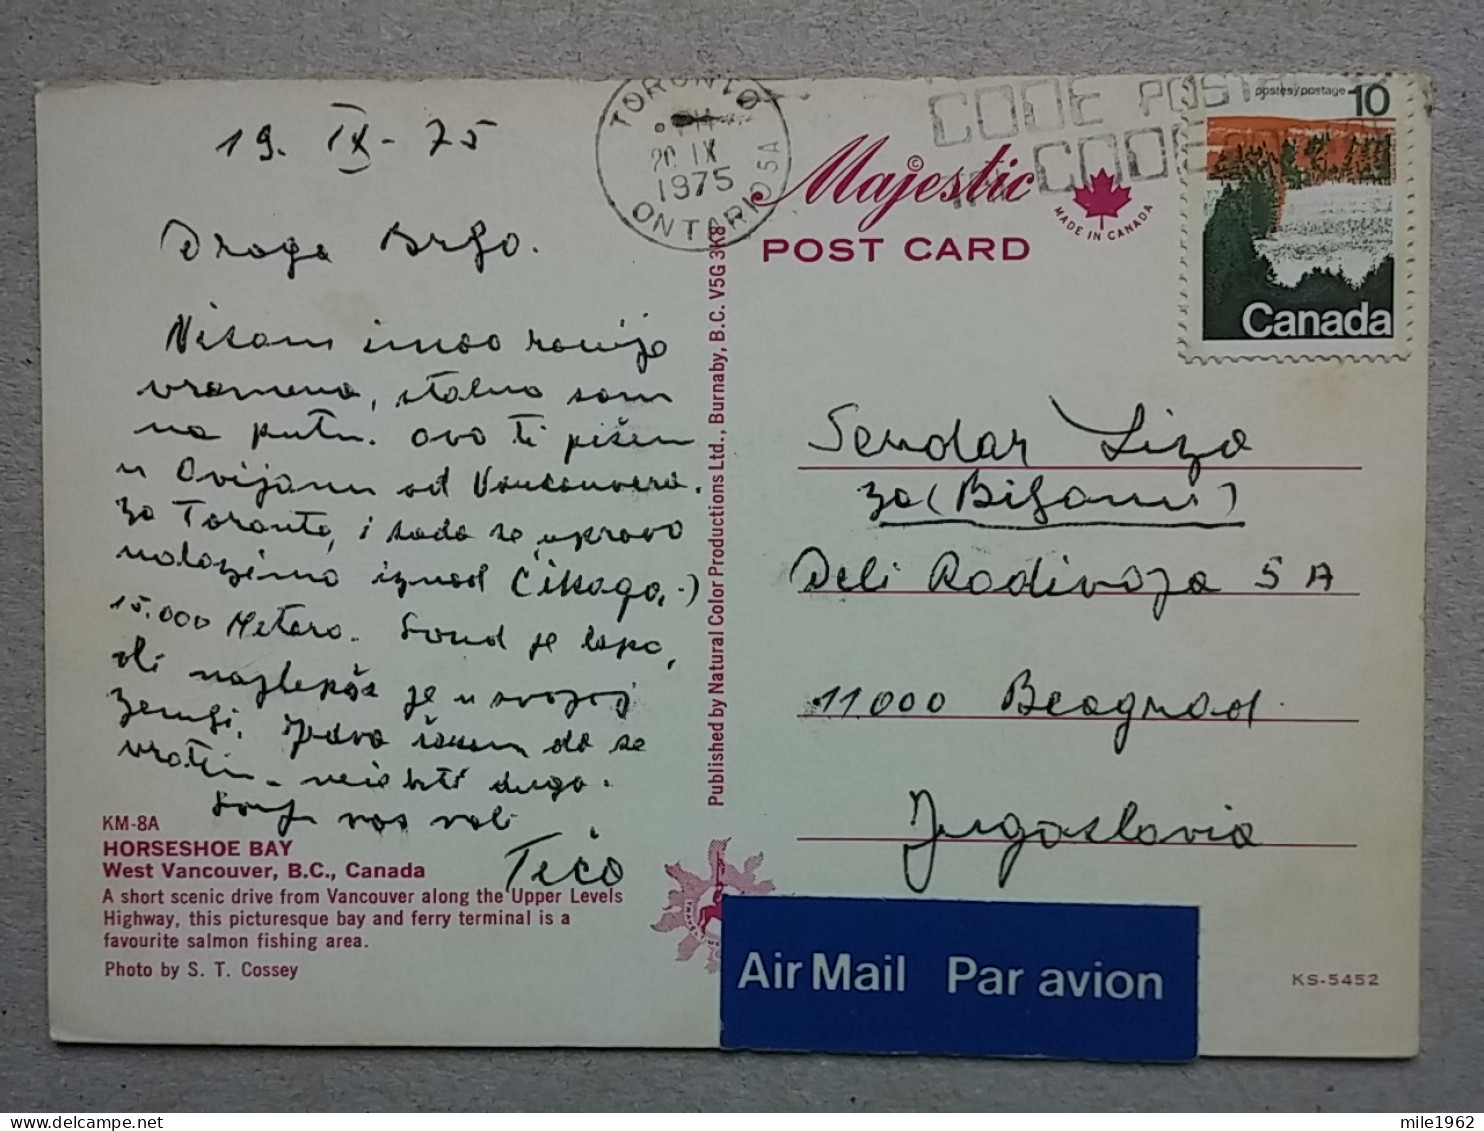 19. IX - 75
Draga
Nisam imao ranije
vremena, stalno sam
na putu. Ovo ti pišem
u Avijanu od Vancouvera.
za Toronto, i sada se upravo
nalazimo iznad Čikaga,
15.000 Metara. Svud je lepo,
ali najlepše je u svojoj
zemlji. Jedva čekam da se
vratim
vas voli
Tićo
KM-8A
HORSESHOE BAY
West Vancouver, B.C., Canada
A short scenic drive from Vancouver along the Upper Levels
Highway, this picturesque bay and ferry terminal is a
favourite salmon fishing area.
Photo by S. T. Cossey
Published by Natural Color Productions Ltd., Burnaby, B.C. V5G 3K8
TORONTO
20 IX
1975
5A
ONTARIO
CODE POSTAL
CODE
Majestic
©
POST CARD
MADE IN CANADA
postes/postage 10
Canada
Sendar Liza
za (
Deli Radivoja 5 A
11.000 Beograd.
Jugoslavia
Air Mail Par avion
KS-5452
mile1962